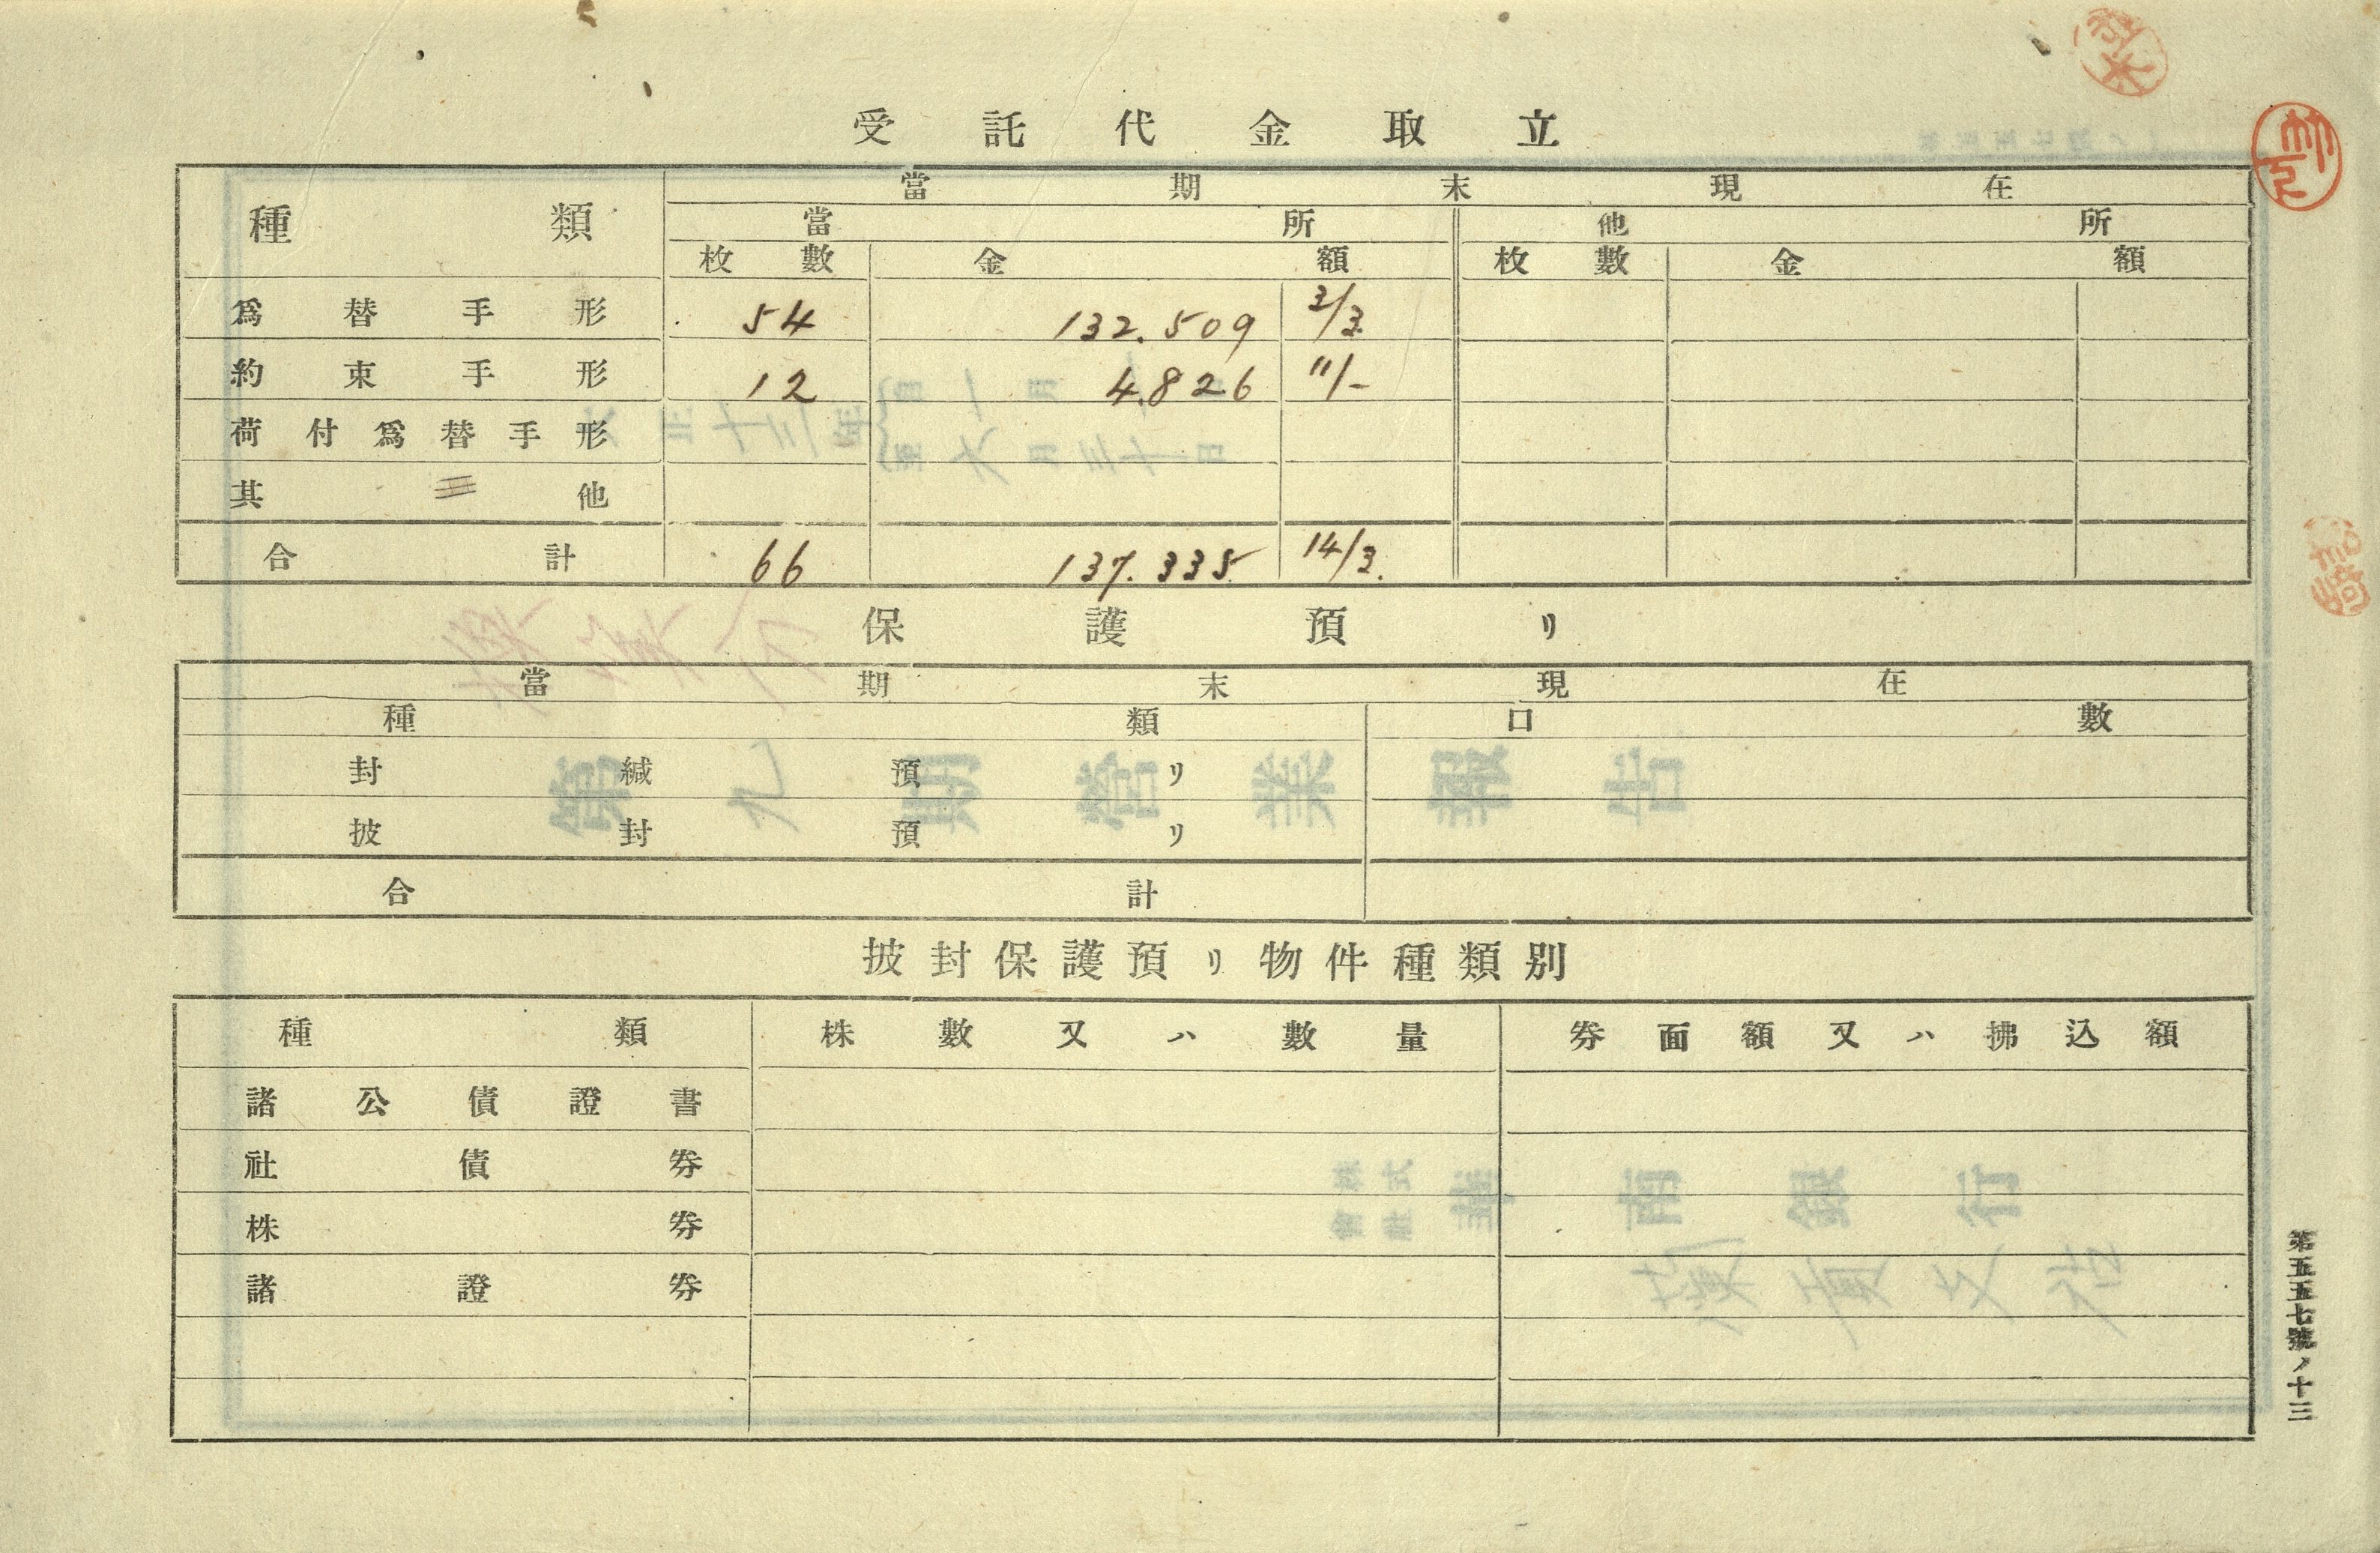 受託代金取立
種類 當期末現在
當所 他所
枚數 金額 枚數 金額
爲替手形 54 132.509 3/3.
約束手形 12 4.826 11/-
荷付爲替手形
其他
合計 66 137.335 14/3.
保護預リ
當期末現在
種類 口數
封緘預リ
披封預リ
合計
披封保護預リ物件種類別
種類 株數又ハ數量 券面額又ハ拂込額
諸公債證書
社債券
株券
諸證券
第五五七號ノ十三
第九期營業報告
株式會社 華南銀行